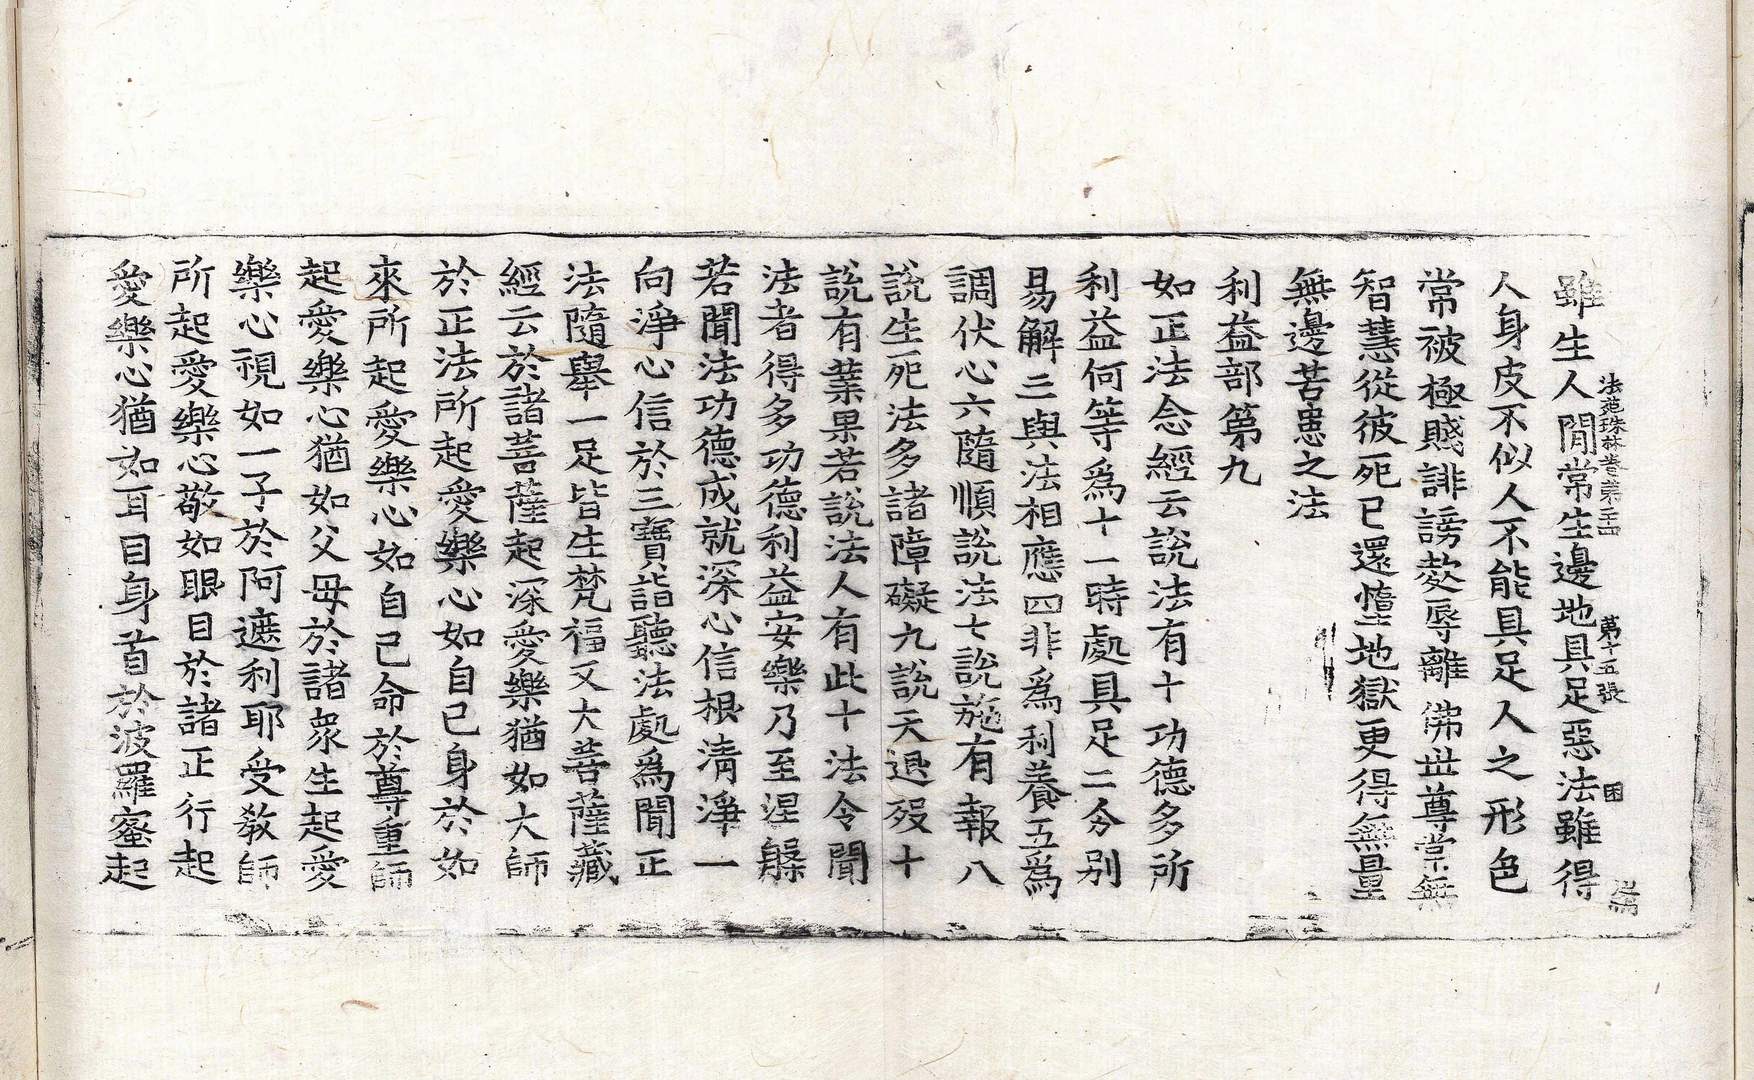 雖生人閒常生邊地具足惡法雖得
法苑珠林卷第二十四 第十五張 困
人身皮不似人不能具足人之形色
常被極賤誹謗欺辱離佛世尊常無
智慧從彼死已還墮地獄更得無量
無邊苦患之法
利益部第九
如正法念經云說法有十功德多所
利益何等爲十一時處具足二分別
易解三與法相應四非爲利養五爲
調伏心六隨順說法七說施有報八
說生死法多諸障礙九說天退歿十
說有業果若說法人有此十法令聞
法者得多功德利益安樂乃至涅槃
若聞法功德成就深心信根清淨一
向淨心信於三寶詣聽法處爲聞正
法隨舉一足皆生梵福又大菩薩藏
經云於諸菩薩起深愛樂猶如大師
於正法所起愛樂心如自己身於如
來所起愛樂心如自己命於尊重師
起愛樂心猶如父母於諸衆生起愛
樂心視如一子於阿遮利耶受敎師
所起愛樂心敬如眼目於諸正行起
愛樂心猶如耳目身首於波羅蜜起